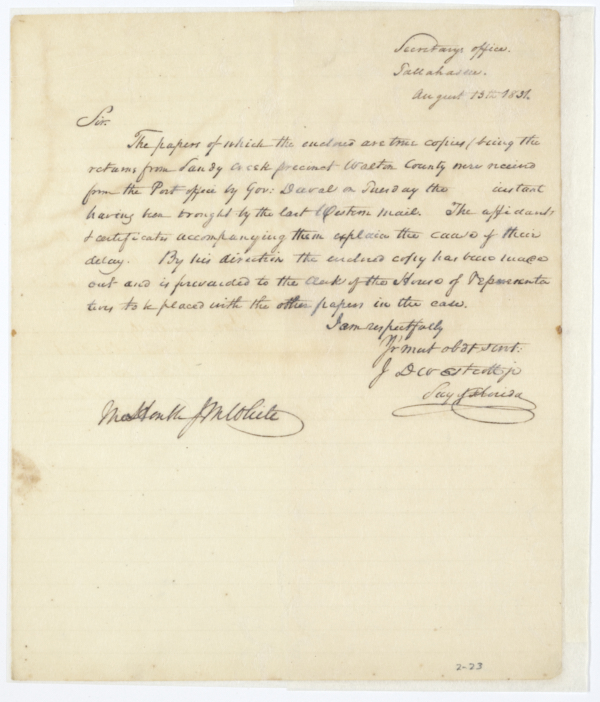 Secretarys office.
Tallahassee.
August 13th 1831.
Sir.
The papers of which the enclosed are true copies (being the
returns from Sandy Creek precinct Walton County were received
from the Post office by Gov: Duval on Tuesday the instant
having been brought by the last Western mail. The affidavits
& certificates accompanying them explain the cause of their
delay. By his direction the enclosed copy has been made
out and is forwarded to the Clerk of the House of Representa
tives to be placed with the other papers in the case.
I am respectfully
Yr most obdt servt:
J D Westcott jr
Secy of Florida
The Honble J M White
2-23